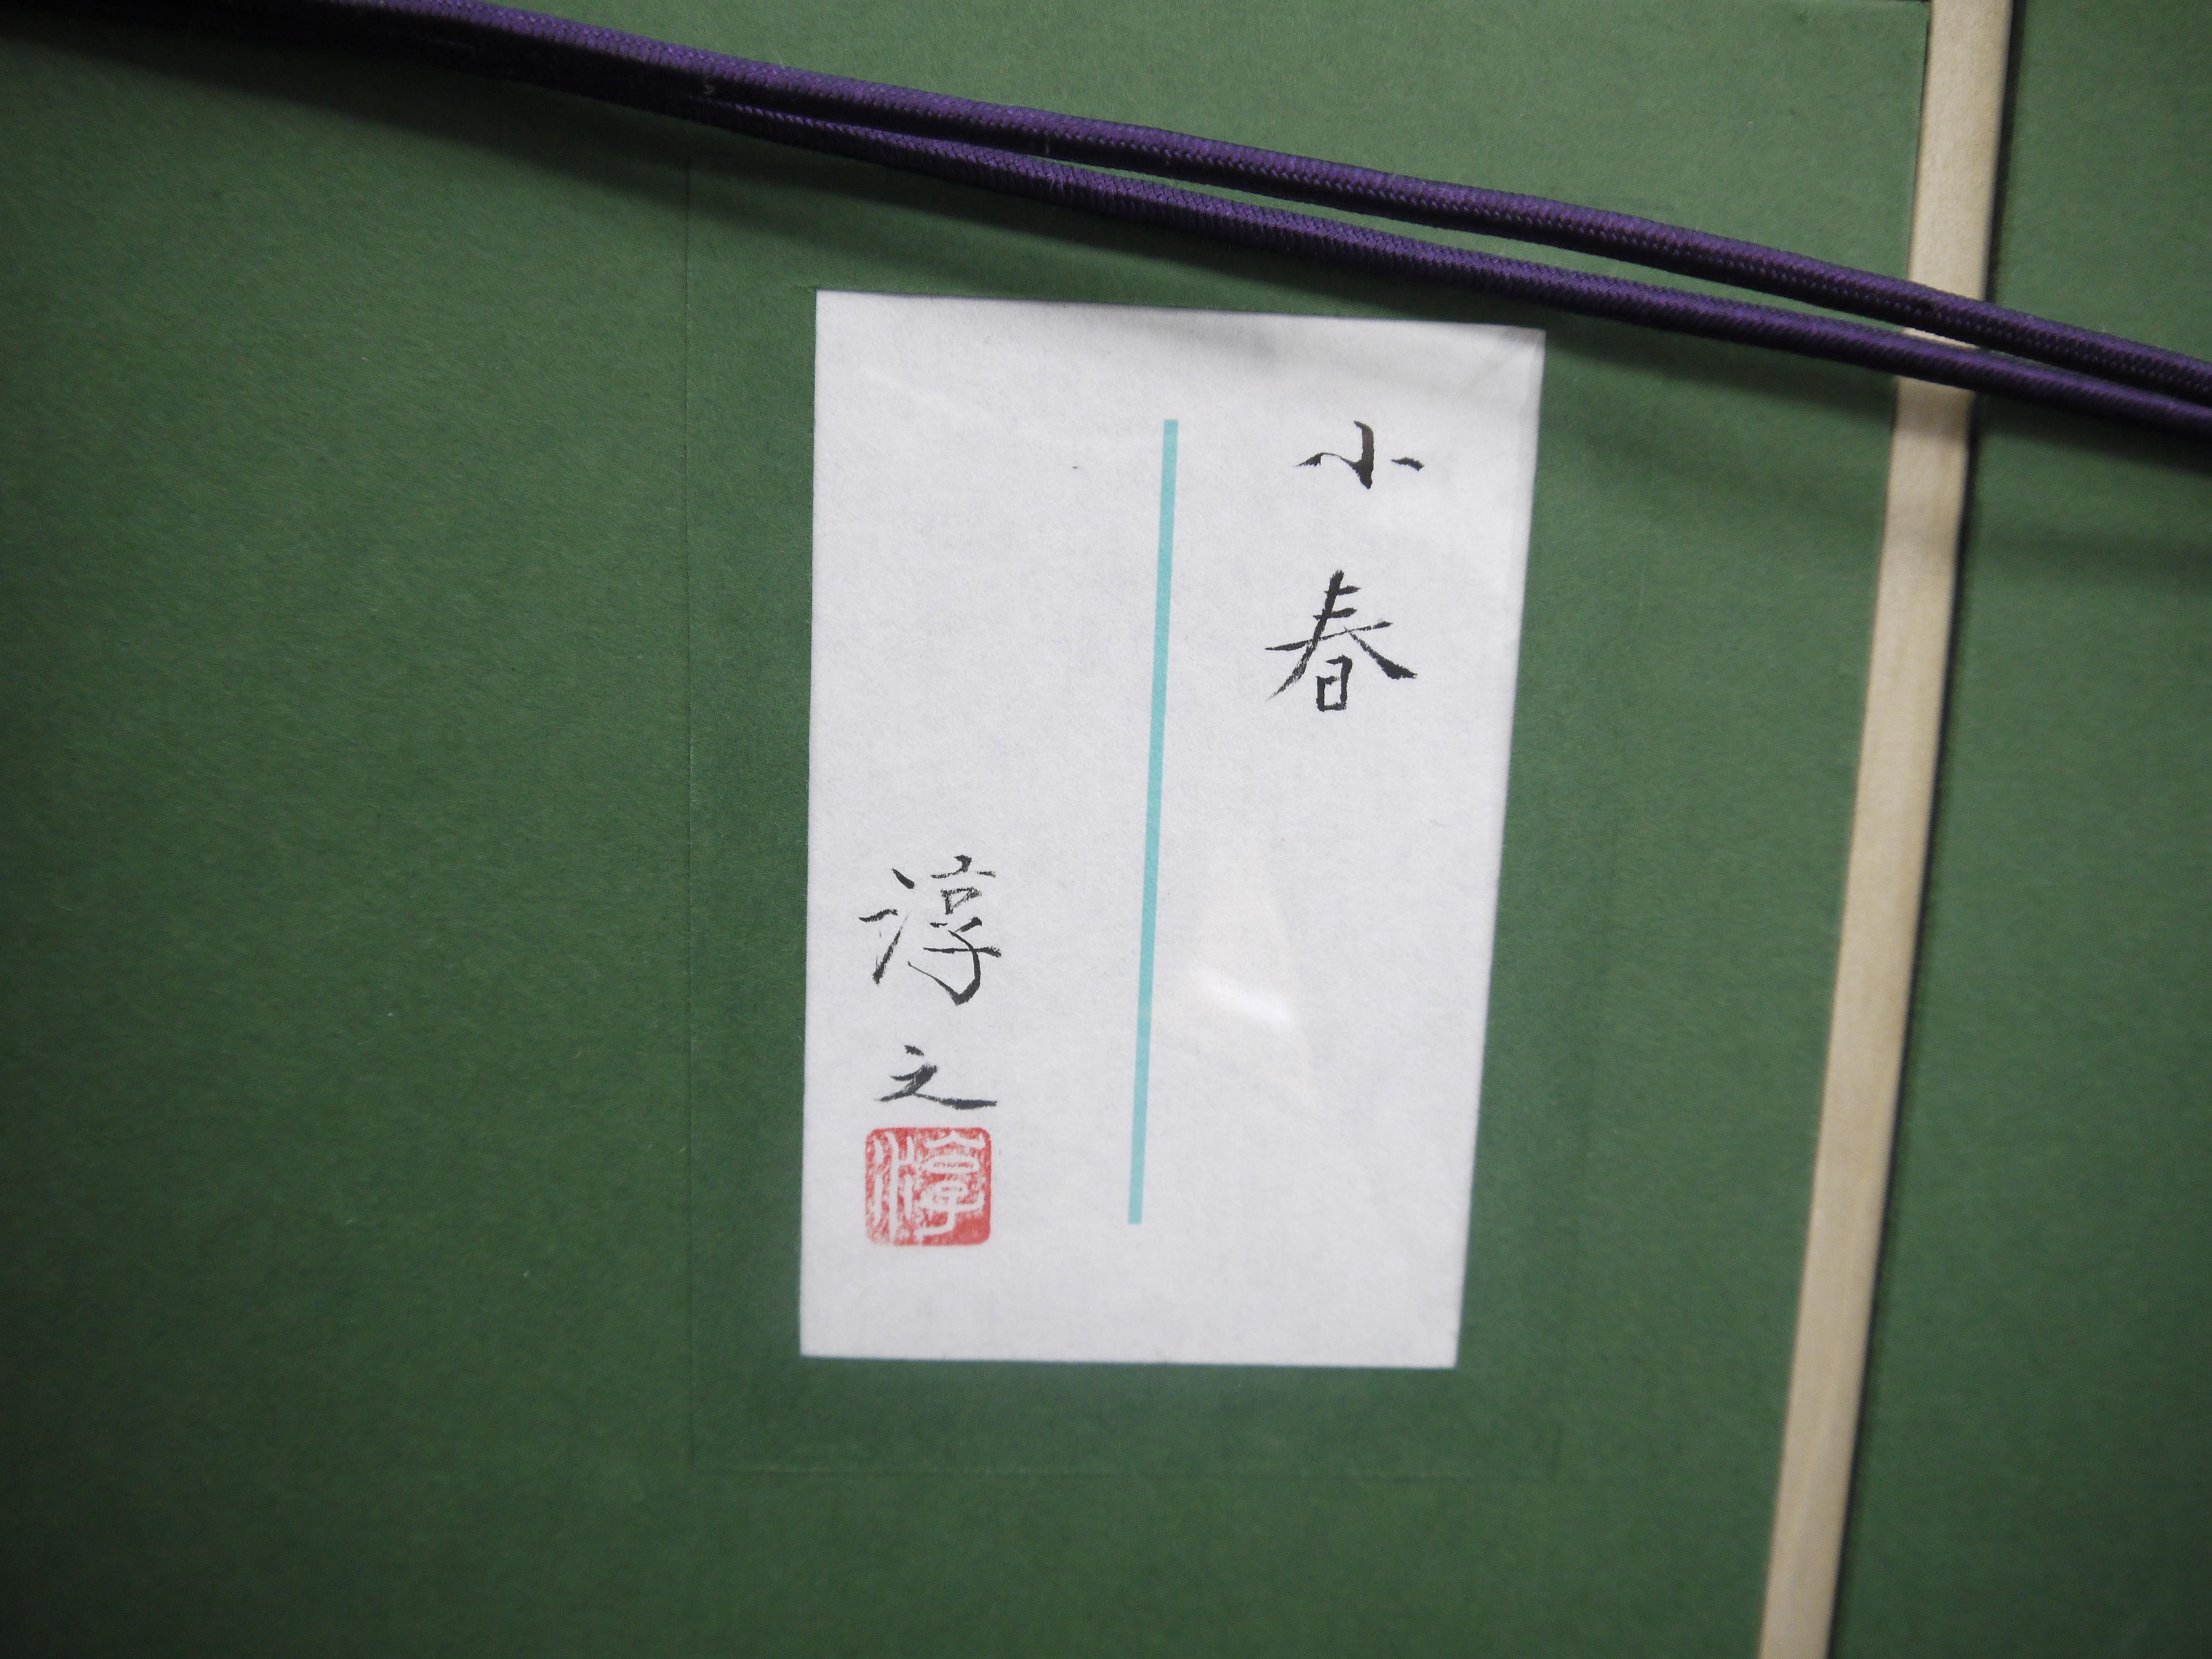 小春
淳之
淳